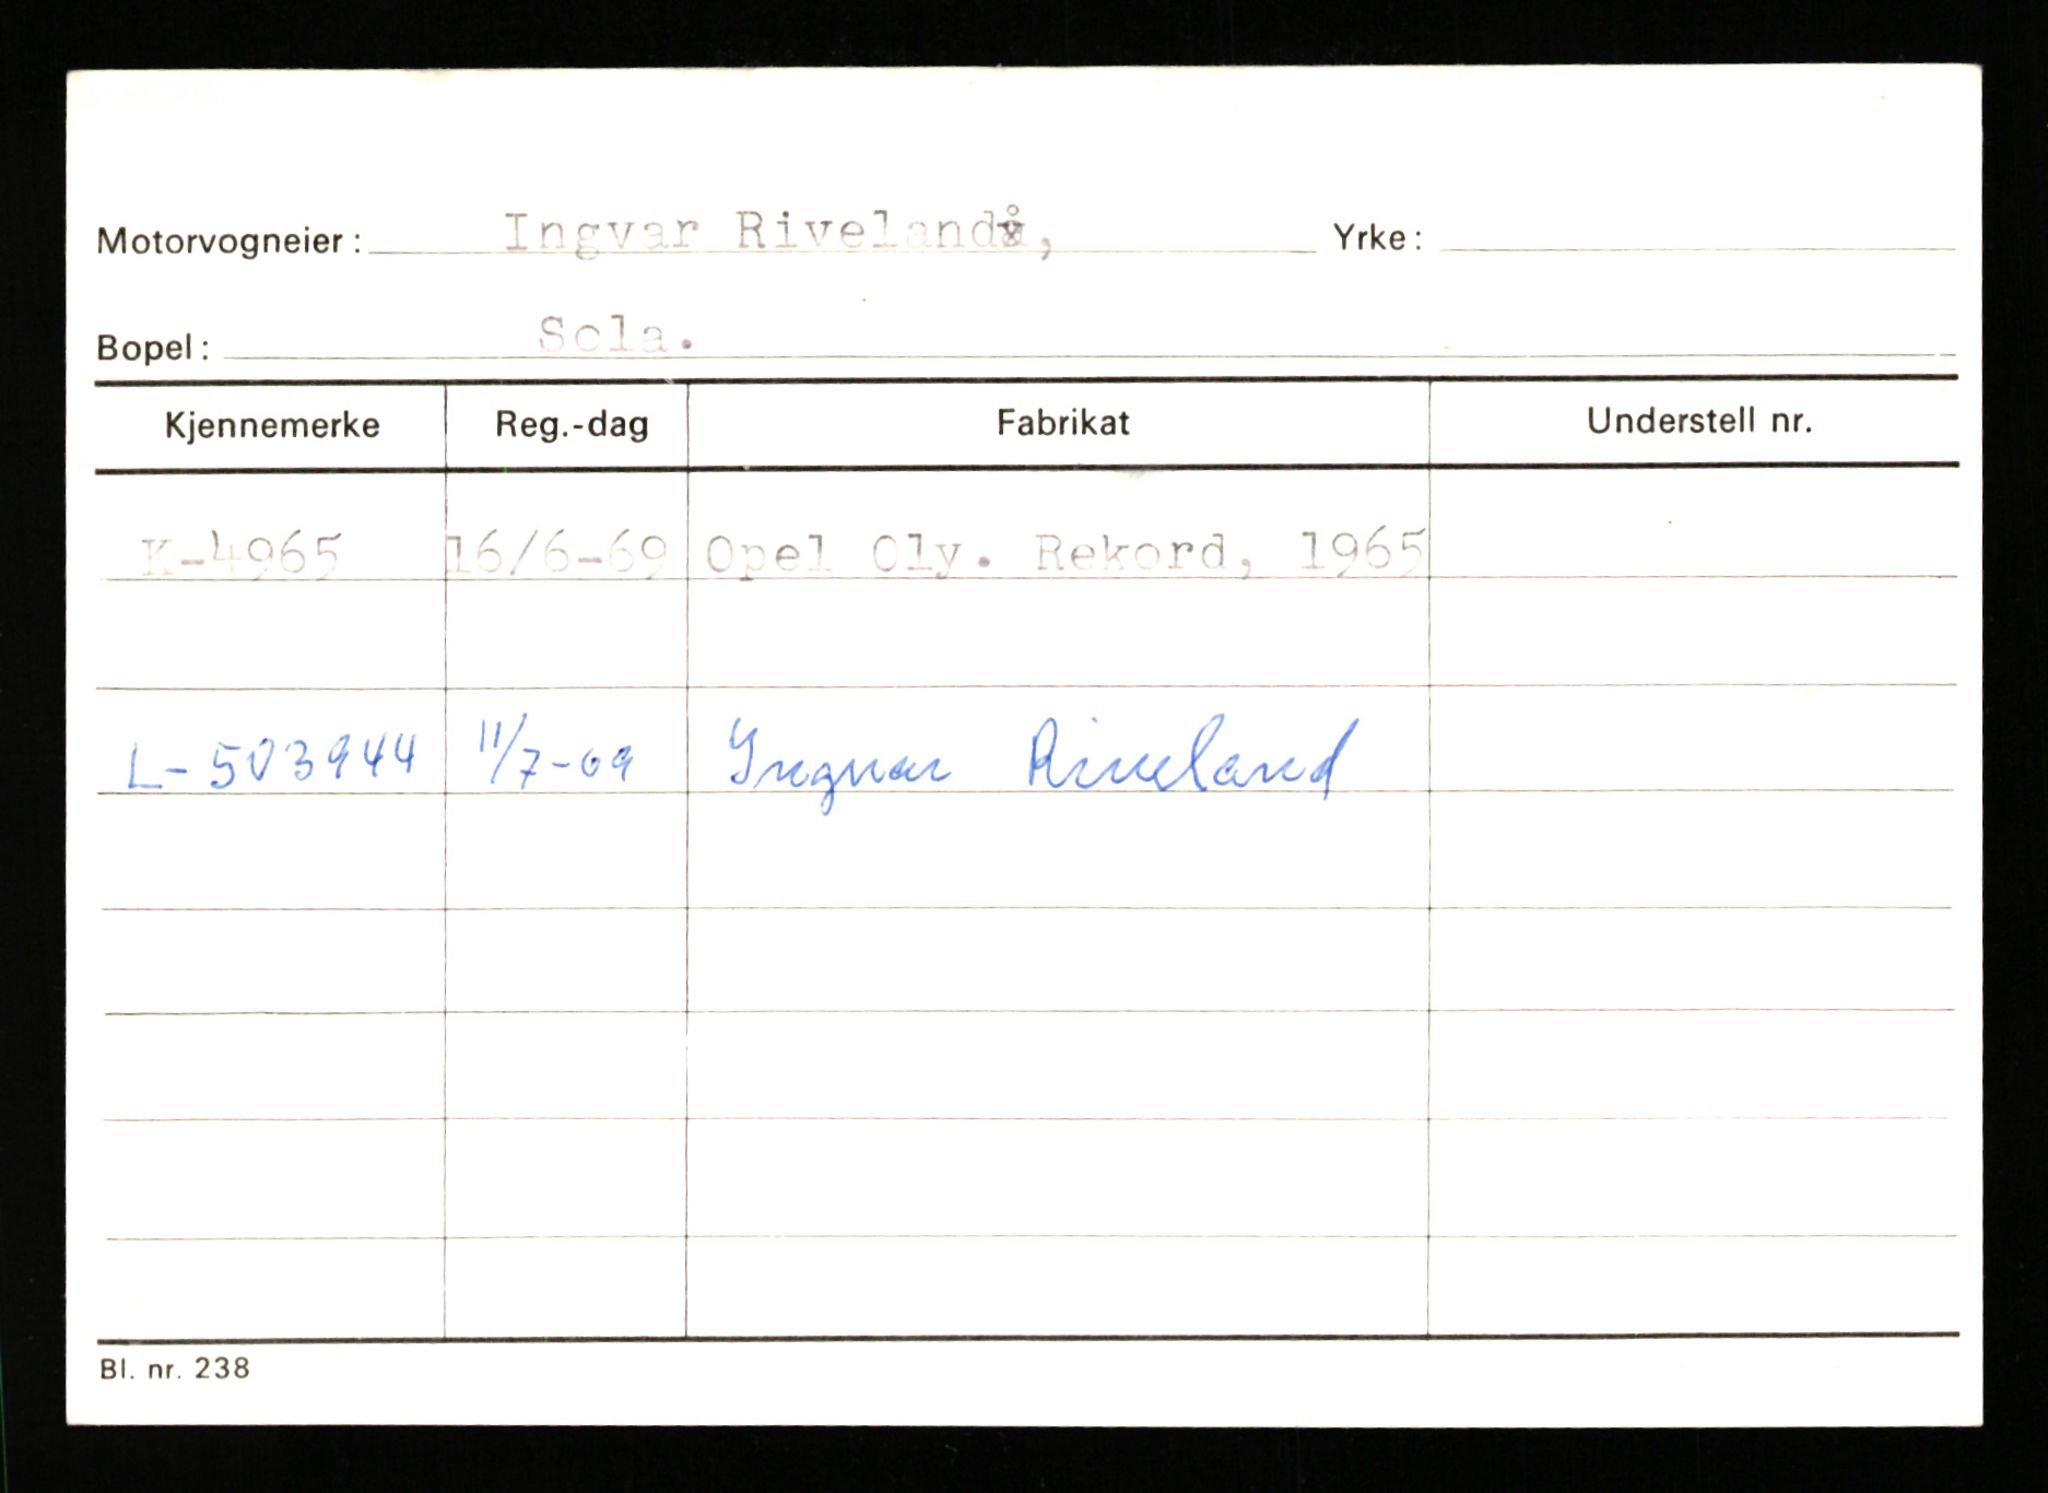 Motorvogneier: Ingvar Riveland, Yrke:
Bopel: Sola.
Kjennemerke Reg.-dag Fabrikat Understell nr.
K-4965 16/6-69 Opel Oly. Rekord, 1965
L-503944 11/7-69 Ingvar Riveland
Bl. nr. 238